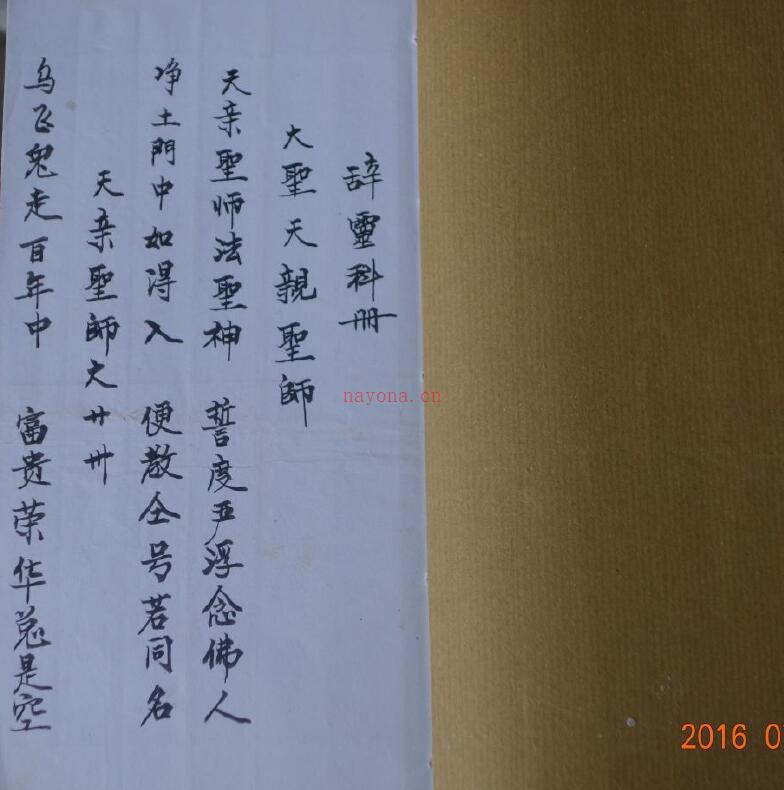 辞靈科册
大聖天親聖師
天亲聖师法聖神 誓度严浮念佛人
净土門中如得入 便散仝号若同名
天亲聖師大廿卅
乌飞兔走百年中 富贵荣华总是空
nayona.cn
2016 0